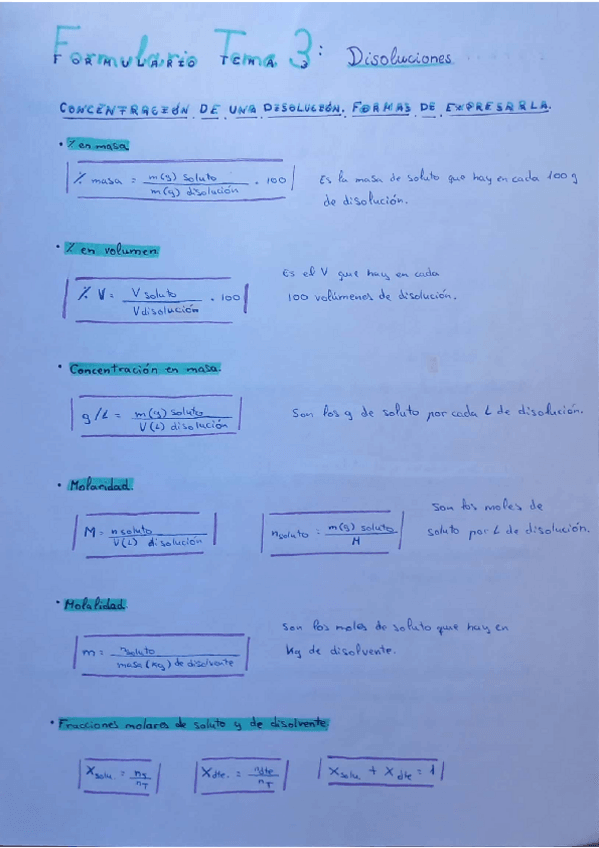 Formulario Tema 3: Disoluciones
FORMULARIO TEMA 3
CONCENTRACIÓN DE UNA DISOLUCIÓN. FORMAS DE EXPRESARLA.
· % en masa
% masa = m(g) soluto / m(g) disolución · 100
Es la masa de soluto que hay en cada 100 g
de disolución.
· % en volumen.
% V = V soluto / V disolución · 100
Es el V que hay en cada
100 volúmenes de disolución.
· Concentración en masa.
g/L = m(g) soluto / V(L) disolución
Son los g de soluto por cada L de disolución.
· Molaridad.
M = n soluto / V(L) disolución
n soluto = m(g) soluto / M
Son los moles de
soluto por L de disolución.
· Molalidad.
m = n soluto / masa (Kg) de disolvente
Son los moles de soluto que hay en
Kg de disolvente.
· Fracciones molares de soluto y de disolvente.
X solu. = ns / nT
X dte. = n dte / nT
X solu + X dte = 1